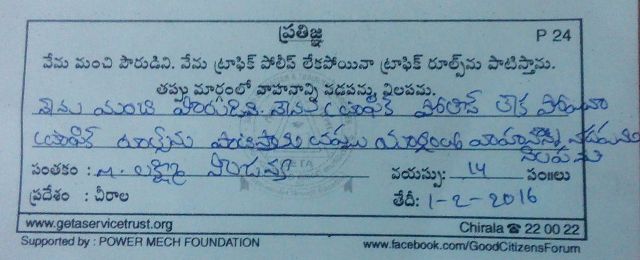 ప్రతిజ్ఞ
P 24
నేను మంచి పౌరుడిని. నేను ట్రాఫిక్ పోలీస్ లేకపోయినా ట్రాఫిక్ రూల్స్‌ను పాటిస్తాను.
తప్పు మార్గంలో వాహనాన్ని నడపను, నిలపను.
నేను మంచి పౌరుడిని నేను ట్రాఫిక్ పోలీస్ లేక పోయినా
ట్రాఫిక్ రూల్స్‌ను పాటిస్తాను తప్పు మార్గంలో వాహనాన్ని నడపను
నిలపను
సంతకం : M. లక్ష్మీ వయస్సు: 14 సం॥లు
ప్రదేశం : చీరాల తేదీ: 1-2-2016
www.getaservicetrust.org Chirala ☎ 22 00 22
Supported by : POWER MECH FOUNDATION www.facebook.com/GoodCitizensForum